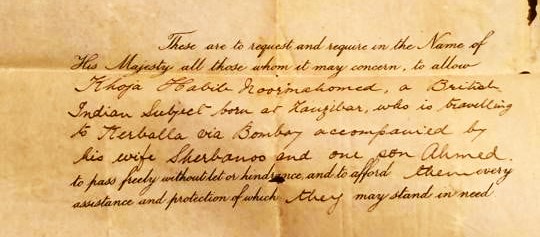 These are to request and require in the Name of
His Majesty all those whom it may concern, to allow
Khoja Habib Noormahomed, a British
Indian Subject born at Zanzibar, who is travelling
to Kerballa via Bombay accompanied by
his wife Sherbanoo and one son Ahmed.
to pass freely without let or hindrance, and to afford them every
assistance and protection of which they may stand in need